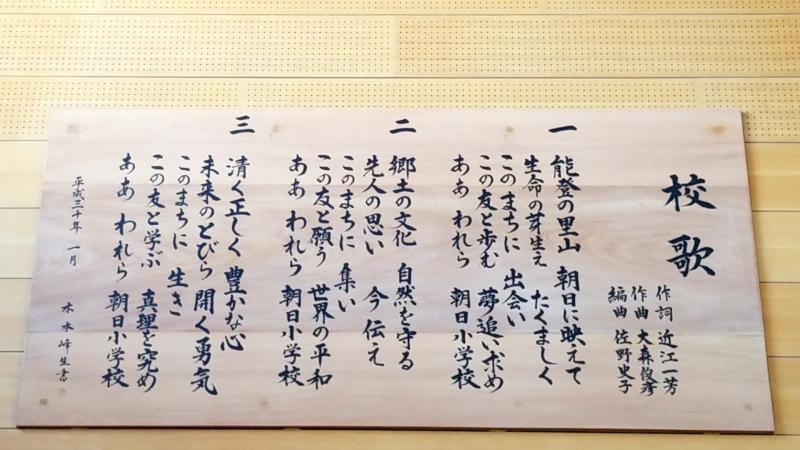 校歌
作詞 近江一芳
作曲 大森俊彦
編曲 佐野史子
一
能登の里山 朝日に映えて
生命の芽生え たくましく
このまちに 出会い
この友と歩む 夢追い求め
ああ われら 朝日小学校
二
郷土の文化 自然を守る
先人の思い 今 伝え
このまちに 集い
この友と願う 世界の平和
ああ われら 朝日小学校
三
清く正しく 豊かな心
未来のとびら 開く勇気
このまちに 生き
この友と学ぶ 真理を究め
ああ われら 朝日小学校
平成三十年 一月
水峰生書